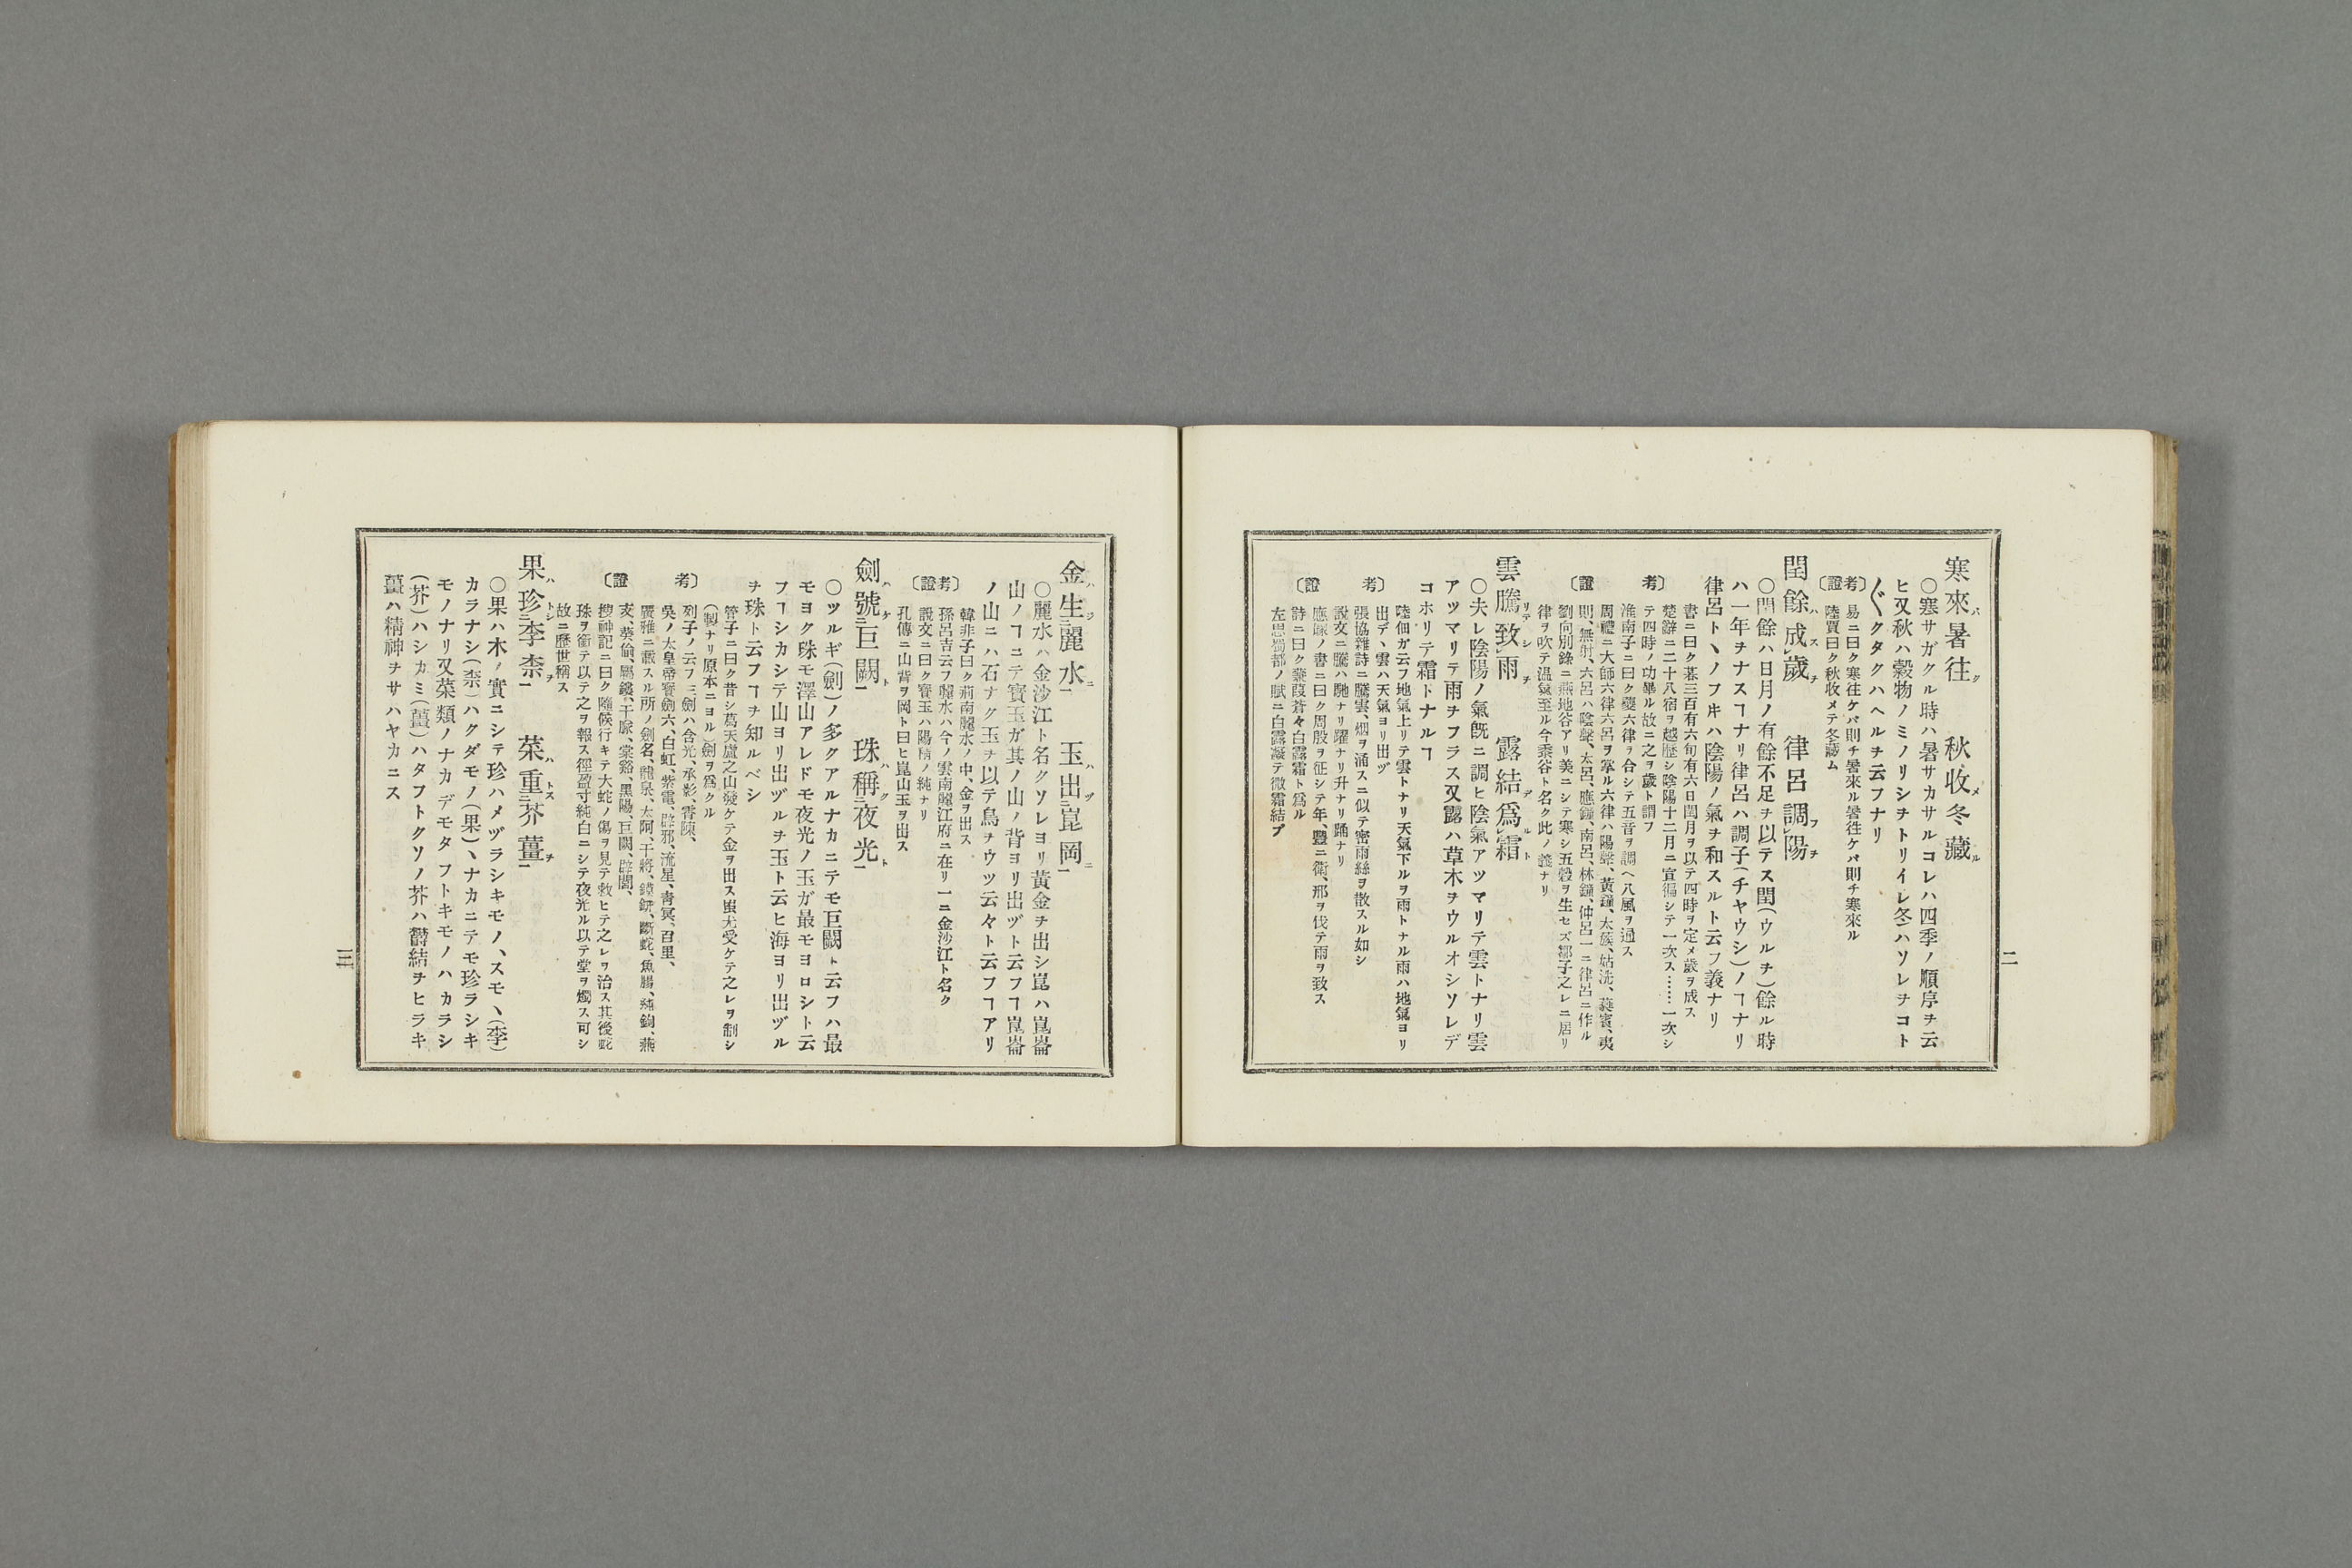 寒來暑往 秋收冬藏
〇寒サガクル時ハ暑サカサルコレハ四季ノ順序ヲ云
ヒ又秋ハ穀物ノミノリシヲトリイレ冬ハソレヲコト
〴〵クタクハヘルヲ云フナリ
〔考證〕
易ニ曰ク寒往ケバ則チ暑來ル暑往ケバ則チ寒來ル
陸賈曰ク秋收メテ冬藏ム
閏餘成歲 律呂調陽
〇閏餘ハ日月ノ有餘不足ヲ以テス閏(ウルヲ)餘ル時
ハ一年ヲナスヿナリ律呂ハ調子(チヤウシ)ノヿナリ
律呂トヽノフキハ陰陽ノ氣ヲ和スルト云フ義ナリ
〔考證〕
書ニ曰ク朞三百有六旬有六日閏月ヲ以テ四時ヲ定メ歲ヲ成ス
楚辭ニ二十八宿ヲ越歷シ陰陽十二月ニ宣徧シテ一次ス……一次シ
テ四時ノ功畢ル故ニ之ヲ歲ト謂フ
淮南子ニ曰ク夔六律ヲ合シテ五音ヲ調ヘ八風ヲ通ス
周禮ニ大師六律六呂ヲ掌ル六律ハ陽聲、黃鐘、太簇、姑洗、蕤賓、夷
則、無射、六呂ハ陰聲、大呂、應鐘、南呂、林鐘、仲呂一ニ律呂ニ作ル
劉向別錄ニ燕地谷アリ美ニシテ寒シ五穀ヲ生セズ鄒子之レニ居リ
律ヲ吹テ温氣至ル今黍谷ト名ク此ノ義ナリ
雲騰致雨 露結爲霜
〇夫レ陰陽ノ氣旣ニ調ヒ陰氣アツマリテ雲トナリ雲
アツマリテ雨ヲフラス又露ハ草木ヲウルオシソレデ
コホリテ霜トナルヿ
〔考證〕
陸佃ガ云フ地氣上リテ雲トナリ天氣下ルヲ雨トナル雨ハ地氣ヨリ
出デ、雲ハ天氣ヨリ出ヅ
張協雜詩ニ騰雲、烟ヲ涌スニ似テ密雨絲ヲ散スル如シ
說文ニ騰ハ馳ナリ躍ナリ升ナリ踊ナリ
應璩ノ書ニ曰ク周殷ヲ征シテ年、豐ニ衛、邢ヲ伐テ雨ヲ致ス
詩ニ曰ク蒹葭蒼々白露霜ト爲ル
左思蜀都ノ賦ニ白露凝テ微霜結プ
二
金生麗水 玉出崑岡
〇麗水ハ金沙江ト名クソレヨリ黃金ヲ出シ崑ハ崑崙
山ノヿニテ寳玉ガ其ノ山ノ背ヨリ出ヅト云フヿ崑崙
ノ山ニハ石ナク玉ヲ以テ鳥ヲウツ云々ト云フヿアリ
〔考證〕
韓非子曰ク荊南麗水ノ中、金ヲ出ス
孫呂吉云フ麗水ハ今ノ雲南麗江府ニ在リ一ニ金沙江ト名ク
說文ニ曰ク寳玉ハ陽精ノ純ナリ
孔傳ニ山背ヲ岡ト曰ヒ崑山玉ヲ出ス
劍號巨闕 珠稱夜光
〇ツルギ(劍)ノ多クアルナカニテモ巨闕ト云フハ最
モヨク珠モ澤山アレドモ夜光ノ玉ガ最モヨロシト云
フヿシカシテ山ヨリ出ヅルヲ玉ト云ヒ海ヨリ出ヅル
ヲ珠ト云フヿヲ知ルベシ
〔考證〕
管子ニ曰ク昔シ葛天盧之山發ケテ金ヲ出ス蚩尤受ケテ之レヲ制シ
(製ナリ原本ニヨル)劍ヲ爲クル
列子ノ云フ三劍ハ含光、承影、霄陳、
吳ノ太皇帝寳劍六、白虹、紫電、辟邪、流星、靑冥、百里、
廣雅ニ載スル所ノ劍名、龍泉、太阿、干將、鏌釾、斷蛇、魚膓、純鈎、燕
支、蔡倫、屬鏤、干隊、棠谿、黑陽、巨闕、辟閭、
搜神記ニ曰ク隨候行キテ大蛇ノ傷ヲ見テ救ヒテ之レヲ治ス其後蛇
珠ヲ銜テ以テ之ヲ報ス徑盈寸純白ニシテ夜光ル以テ堂ヲ燭ス可シ
故ニ歷世稱ス
果珍李柰 菜重芥薑
〇果ハ木ノ實ニシテ珍ハメヅラシキモノ、スモヽ(李)
カラナシ(柰)ハクダモノ(果)ヽナカニテモ珍ラシキ
モノナリ又菜類ノナカデモタフトキモノハカラシ
(芥)ハシカミ(薑)ハタフトクソノ芥ハ欝結ヲヒラキ
薑ハ精神ヲサハヤカニス
三